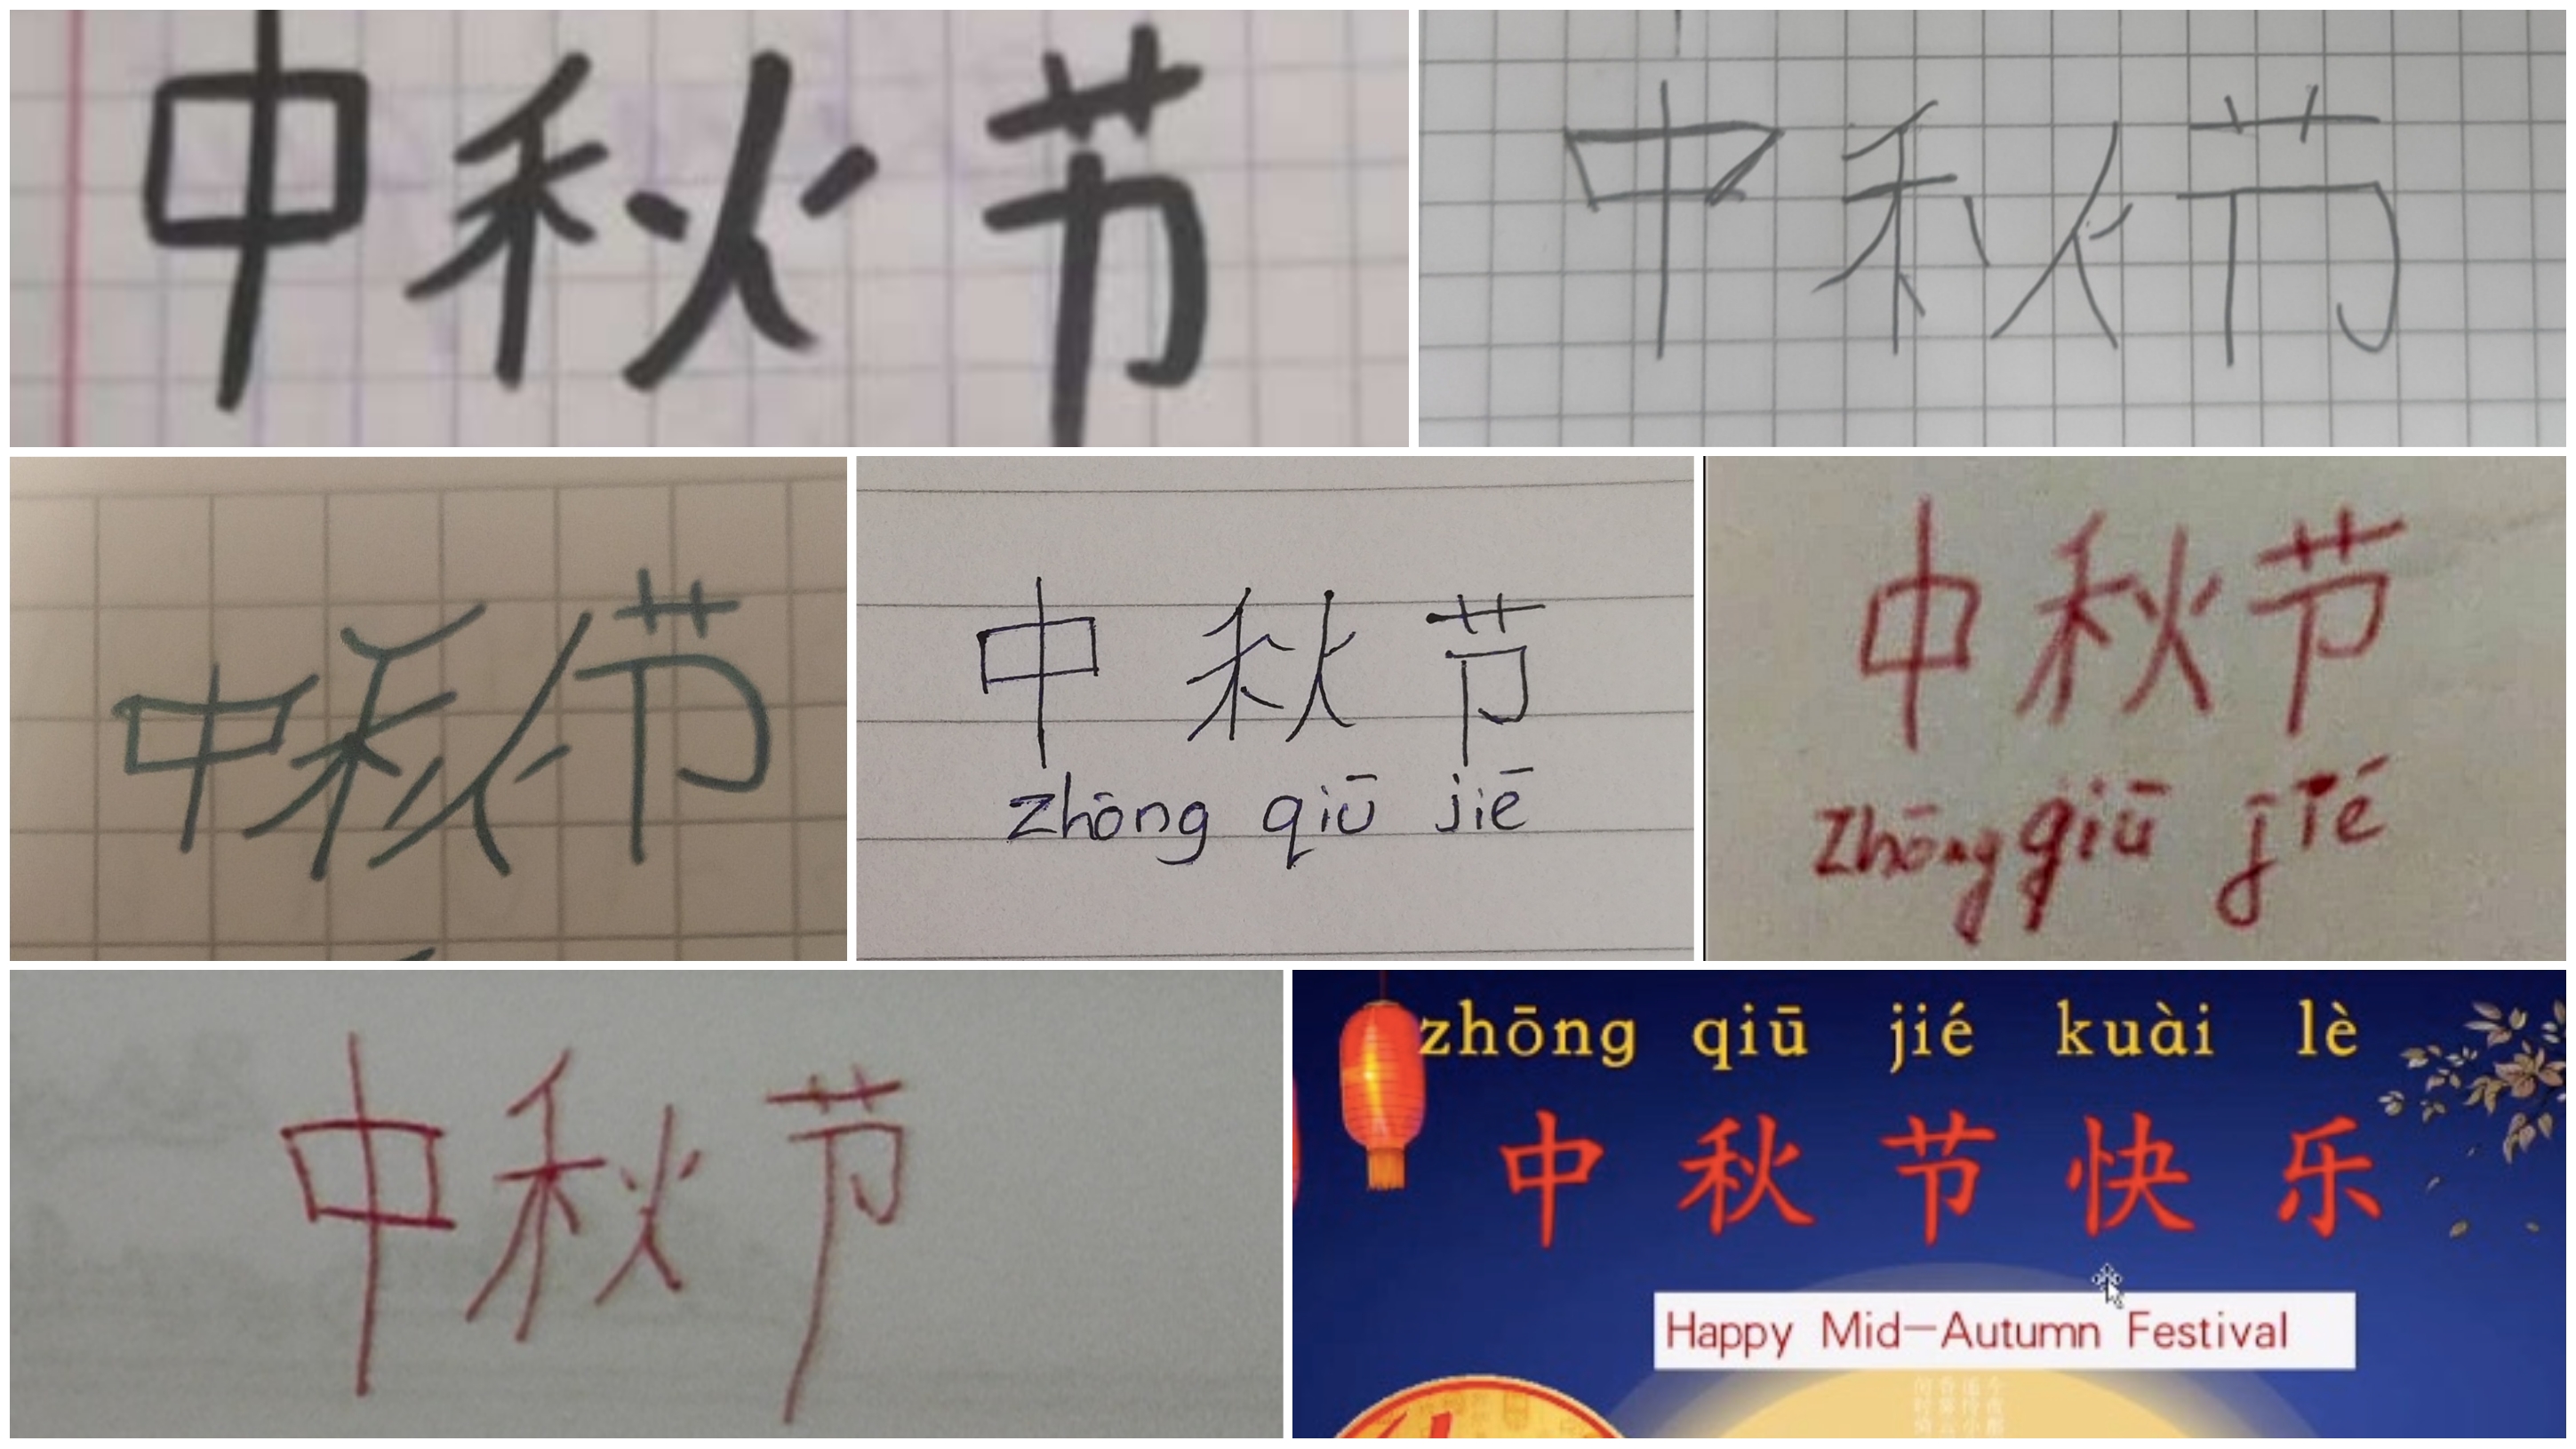 中秋节
中秋节
中秋节
中秋节
zhōng qiū jiē
中秋节
Zhōng qiū jié
中秋节
zhōng qiū jié kuài lè
中秋节快乐
Happy Mid-Autumn Festival